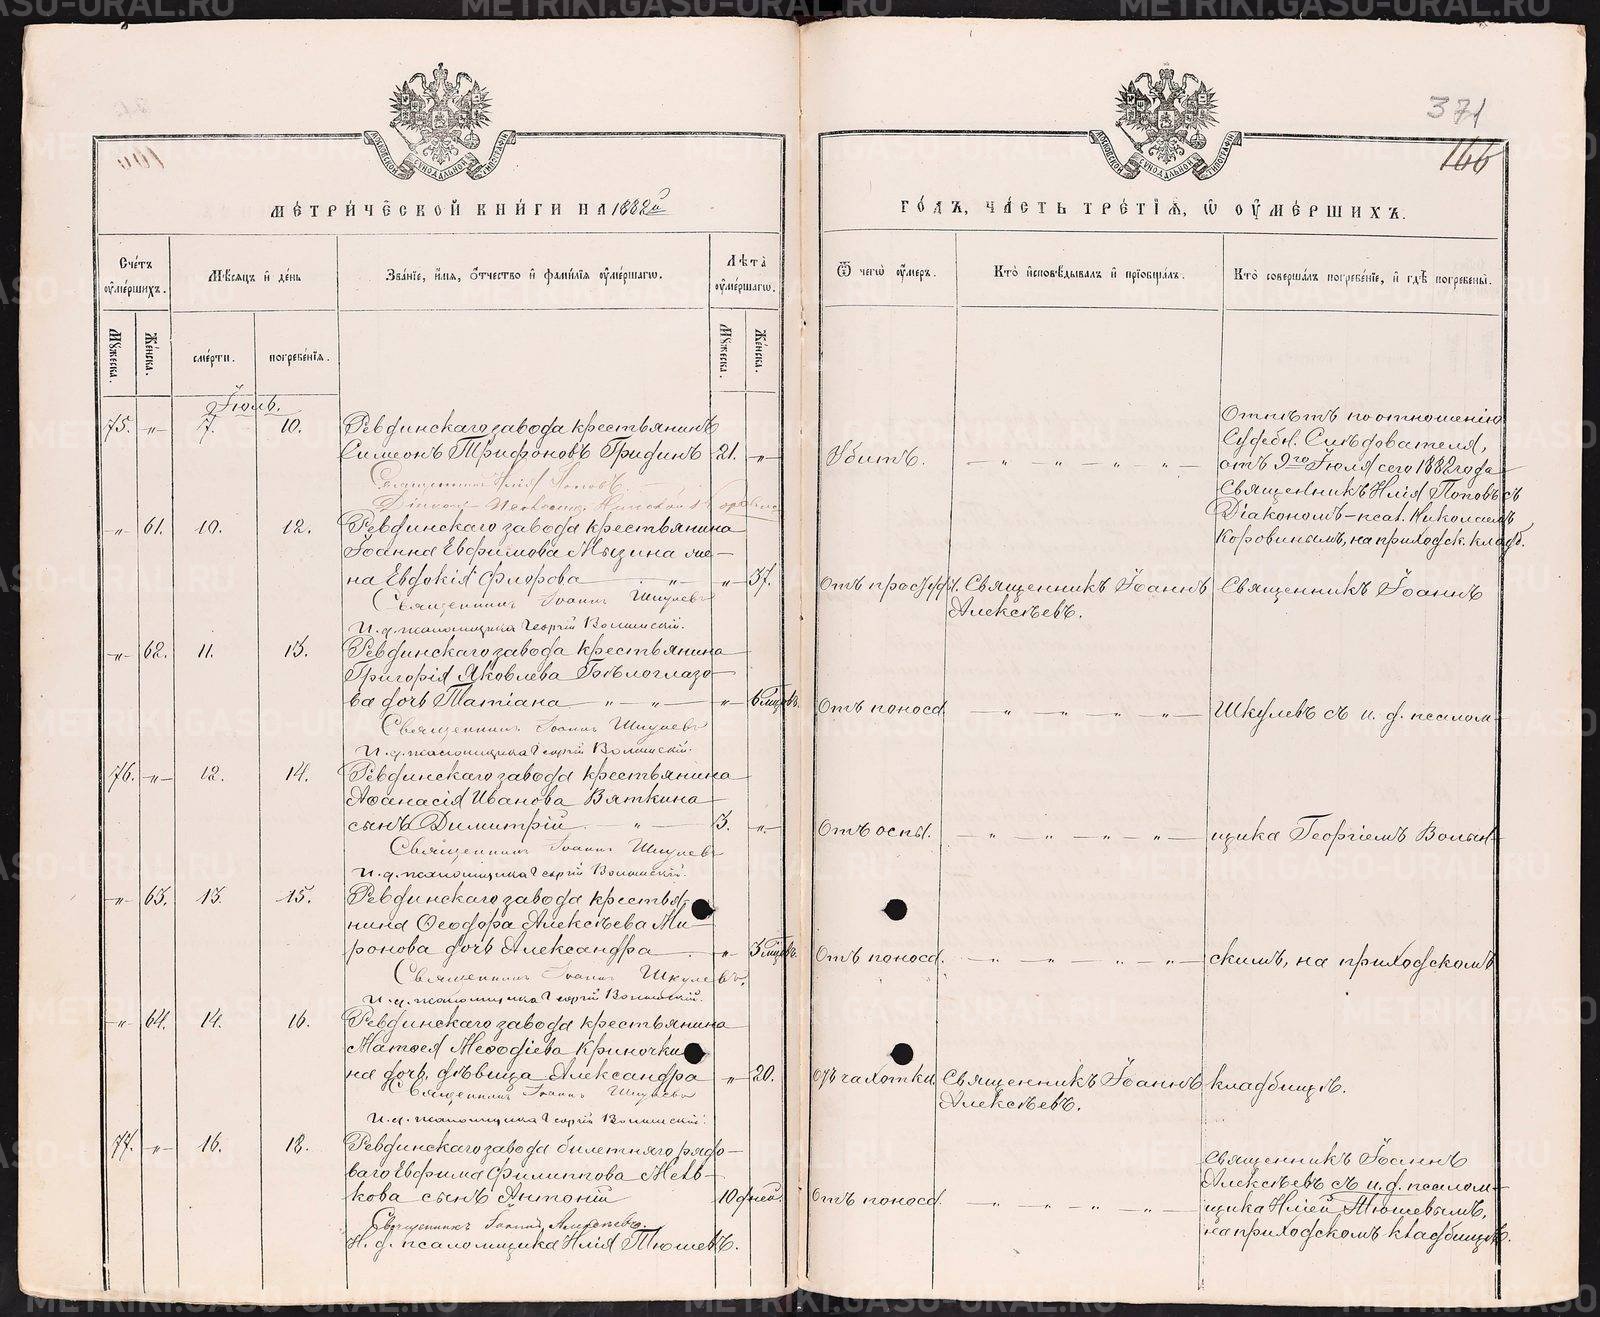 371
166
МЕТРИЧЕСКОЙ КНИГИ НА 1882й
ГОДЪ, ЧАСТЬ ТРЕТІЯ, Ѡ ОУМЕРШИХЪ.
Счетъ оумершихъ.
Мѣсяцъ и день
Званіе, имя, отчество и фамилія оумершагѡ.
Лѣта оумершагѡ.
Ѿ чегѡ оумеръ.
Кто исповѣдывалъ и пріобщалъ.
Кто совершалъ погребеніе, и гдѣ погребены.
Мужеска.
Женска.
смерти.
погребенія.
Мужеска.
Женска.
Іюль.
75. -„- 7. 10. Ревдинскаго завода крестьянинъ
Симеонъ Трифоновъ Гридинъ 21. „
Священникъ Илія Поповъ
Убитъ. — „ — „ — „ — „ —
Отпѣтъ по отношенію
Судебн. Слѣдователя,
отъ 9го Іюля сего 1882 года
Священникъ Илія Поповъ съ
Діакономъ-псал. Николаемъ
Коровинымъ, на приходск. кладб.
-„- 61. 10. 12. Ревдинскаго завода крестьянина
Іоанна Евфимова Мызина же-
на Евдокія Флорова — „ — „ 37.
Священникъ Іоаннъ Шкулевъ
И. д. псаломщика Георгій Волынскій.
Отъ простуды. Священникъ Іоаннъ
Алексѣевъ.
Священникъ Іоаннъ
-„- 62. 11. 13. Ревдинскаго завода крестьянина
Григорія Яковлева Бѣлоглазо-
ва дочь Татіана — „ — „ — „ 6 мцовъ.
Священникъ Іоаннъ Шкулевъ
И. д. псаломщика Георгій Волынскій.
Отъ поноса. — „ — „ — „ — „ — Шкулевъ съ и. д. псалом-
76. -„- 12. 14. Ревдинскаго завода крестьянина
Аѳанасія Иванова Вяткина
сынъ Димитрій — „ — 3. -„-
Священникъ Іоаннъ Шкулевъ
И. д. псаломщика Георгій Волынскій.
Отъ оспы. — „ — „ — „ — „ — щика Георгіемъ Волын-
-„- 63. 13. 15. Ревдинскаго завода крестья-
нина Ѳеодора Алексѣева Ми-
ронова дочь Александра — „ 3 мцовъ.
Священникъ Іоаннъ Шкулевъ.
И. д. псаломщика Георгій Волынскій.
Отъ поноса. — „ — „ — „ — „ — скимъ, на приходскомъ
-„- 64. 14. 16. Ревдинскаго завода крестьянина
Матѳея Меѳодіева Криночки
на дочь, дѣвица Александра „ 20.
Священникъ Іоаннъ Шкулевъ
И. д. псаломщика Георгій Волынскій.
Отъ чахотки. Священникъ Іоаннъ
Алексѣевъ.
кладбищѣ.
77. -„- 16. 18. Ревдинскаго завода билетнаго рядо-
ваго Евфима Филиппова Мель-
кова сынъ Антоній 10 дней.
Священникъ Іоаннъ Алексѣевъ.
И. д. псаломщика Илія Тюшевъ.
Отъ поноса. „ — „ — „ — „ —
Священникъ Іоаннъ
Алексѣевъ съ и. д. псалом-
щика Иліей Тюшевымъ,
на приходскомъ кладбищѣ.